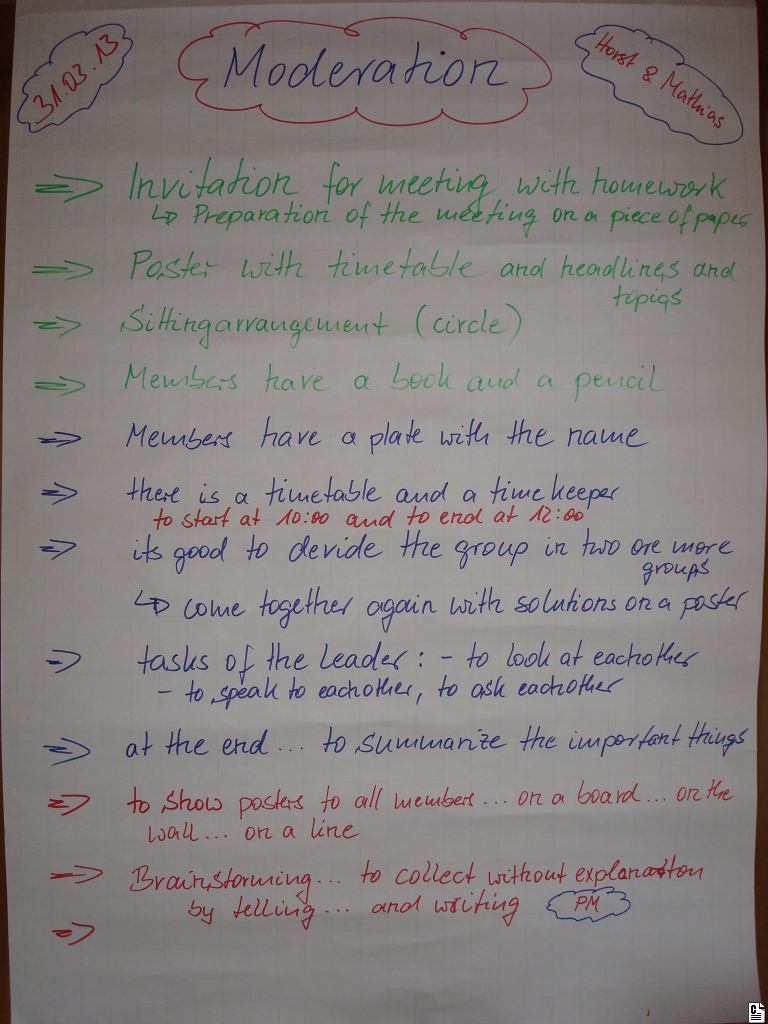 31.03.13
Moderation
Horst & Mathias
Invitation for meeting with homework
↳ Preparation of the meeting on a piece of paper
Poster with timetable and headlines and
topigs
Sittingarrangement (circle)
Members have a book and a pencil
Members have a plate with the name
there is a timetable and a time keeper
to start at 10:00 and to end at 12:00
its good to devide the group in two ore more
groups
↳ come together again with solutions on a poster
tasks of the Leader: - to look at eachother
- to speak to eachother, to ask eachother
at the end... to summarize the important things
to show posters to all members... on a board... on the
wall... on a line
Brainstorming... to collect without explanation
by telling... and writing PM